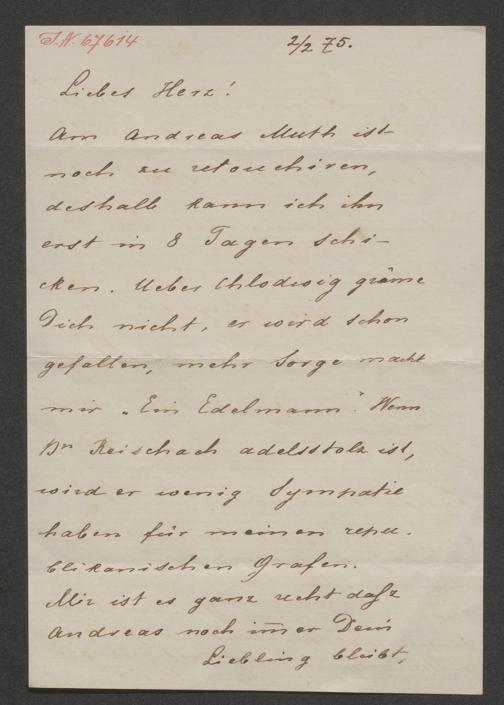 J.N. 67614
2/2 75.
Liebes Herz!
Am Andreas Muth ist
noch zu retouchiren,
deshalb kann ich ihn
erst in 8 Tagen schi-
cken. Ueber Chlodwig gräme
Dich nicht, er wird schon
gefallen, mehr Sorge macht
mir „Ein Edelmann". Wenn
Bn Reischach adelsstolz ist,
wird er wenig Sympatie
haben für meinen repu-
blikanischen Grafen.
Mir ist es ganz recht daß
Andreas noch im̄er Dein
Liebling bleibt,